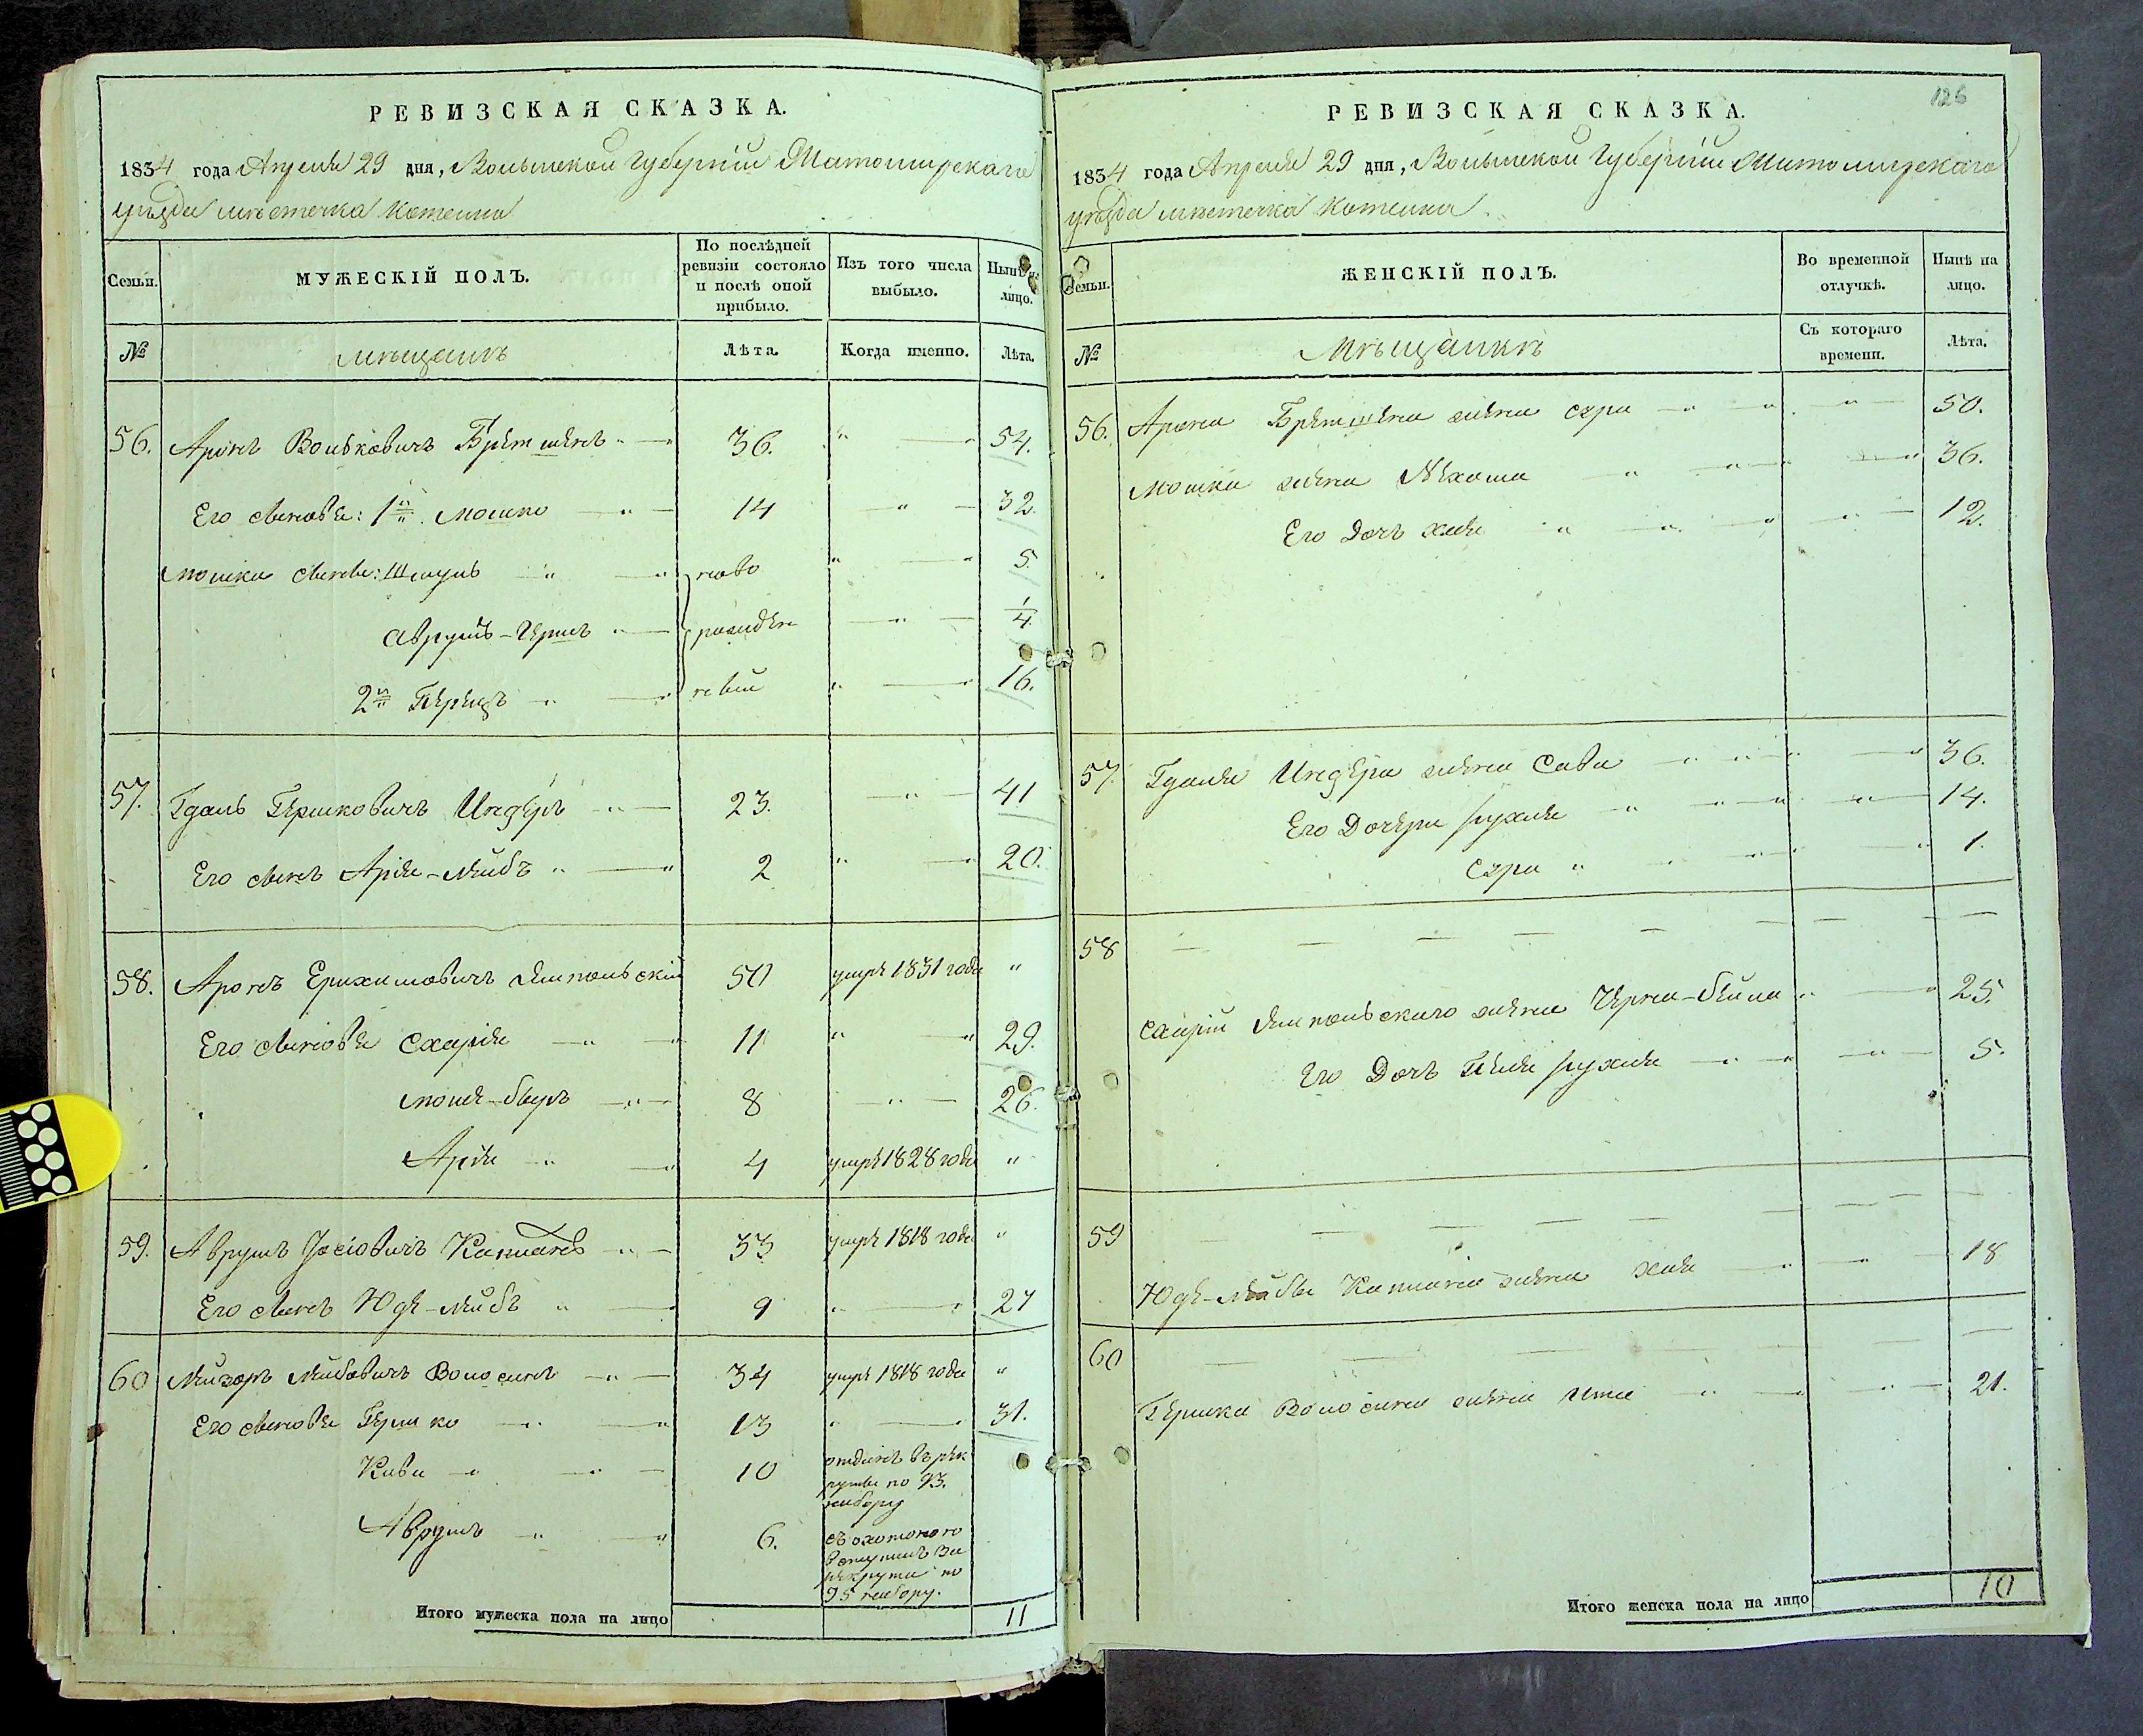 РЕВИЗСКАЯ СКАЗКА.
1834 года Апреля 29 дня, Волынской Губернiи Житомирскаго
уезда местечка Котельни
Семьи.
МУЖЕСКІЙ ПОЛЪ.
По послѣдней ревизіи состояло и послѣ оной прибыло.
Изъ того числа выбыло.
Нынѣ на лицо.
№
мѣщанъ
Лѣта.
Когда именно.
Лѣта.
56. Аронъ Вольковичъ 36. " 54.
Его сыновья: 1й. Мошко " 14 " 32.
Мошка сыновья: Шмуль " ново " 5.
Аврумъ-Герш " рожден " 1/4
2й Перецъ " ные " 16.
57. Гдаль Гершковичъ Индеръ " 23. " 41
Его сынъ Арiя-Лейбъ " 2 " 20.
58. Аронъ Ерухимовичъ Ямпольскiй 50 умре 1831 года "
Его сыновья Схарiя " 11 " 29.
Моше-беръ " 8 " 26.
Арiя " 4 умре 1828 года "
59. Аврумъ Iосiовичъ Капланъ " 33 умре 1818 года "
Его сынъ Юде-Лейбъ " 9 " 27
60 Лейзоръ Лейбовичъ Волосинъ " 34 умре 1818 года "
Его сыновья Гершко " 13 " 31.
Кива " 10 отданъ въ рек
руты по 93.
набору
Аврумъ " 6. съ охотного
вступилъ въ
рекруты по
95 набору.
Итого мужеска пола на лицо 11
126
РЕВИЗСКАЯ СКАЗКА.
1834 года Апреля 29 дня, Волынской Губернiи Житомирскаго
уезда местечка Котельни.
Семьи.
ЖЕНСКІЙ ПОЛЪ.
Во временной отлучкѣ.
Нынѣ на лицо.
№
Мѣщанкъ
Съ котораго времени.
Лѣта.
56. Арона жена Сура " 50.
Мошка жена Нехома " 36.
Его дочь Хая " 12.
57. Гдаля Индера жена Сава " 36.
Его дочери Рухля " 14.
Сура " 1.
58
Схарiи Ямпольскаго жена Черна-бейла " 25.
Его дочь Рухля " 5.
59
Юде-Лейбы Каплана жена Хая " 18
60
Гершка Волосина жена Ита " 21.
Итого женска пола на лицо 10